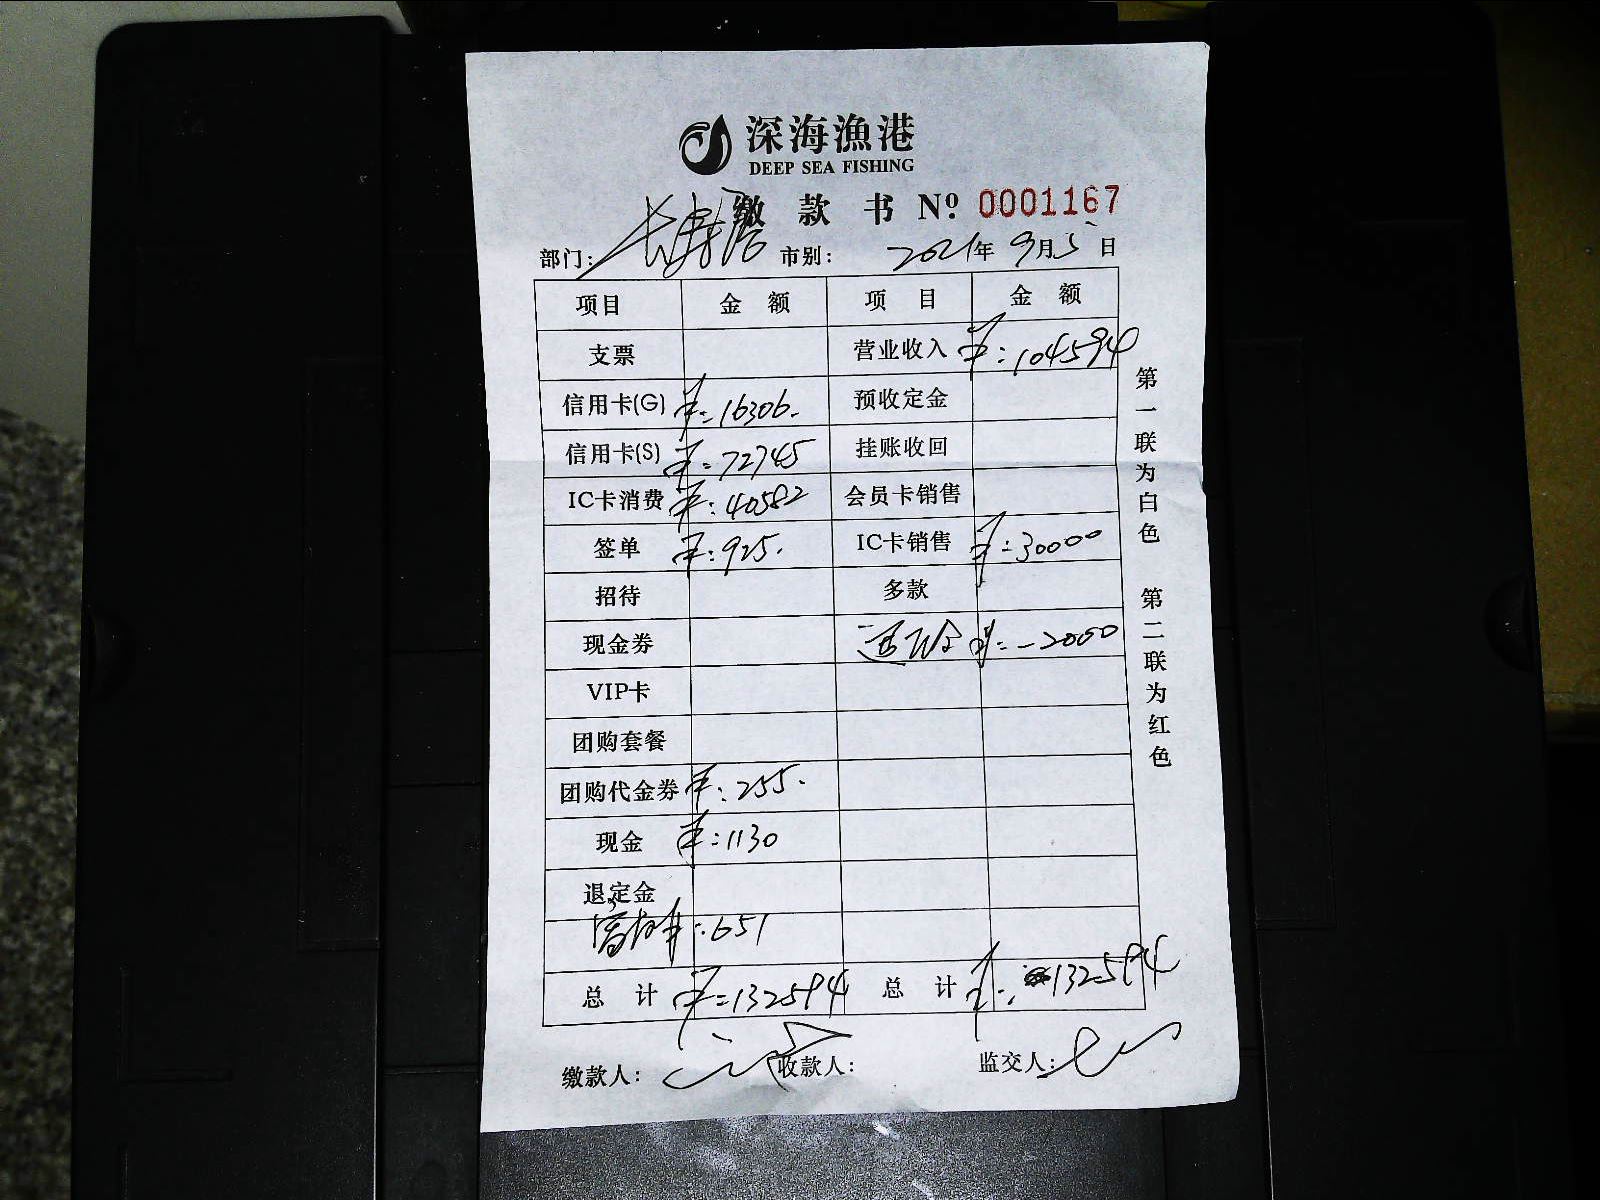 深海漁港
DEEP SEA FISHING
缴 款 书 Nº: 0001167
部门: 市别: 2021年 9月5日
项目 金 额 项 目 金 额
支票 营业收入 ¥:104594
信用卡(G) ¥:16306. 预收定金
信用卡(S) ¥:72745 挂账收回
IC卡消费 ¥:40582 会员卡销售
签单 ¥:925. IC卡销售 ¥:30000
招待 多款
现金券 ¥:-2000
VIP卡
团购套餐
团购代金券 ¥:255.
现金 ¥:1130
退定金
¥:651
总 计 ¥:132594 总 计 ¥:132594
缴款人: 收款人: 监交人:
第一联为白色 第二联为红色